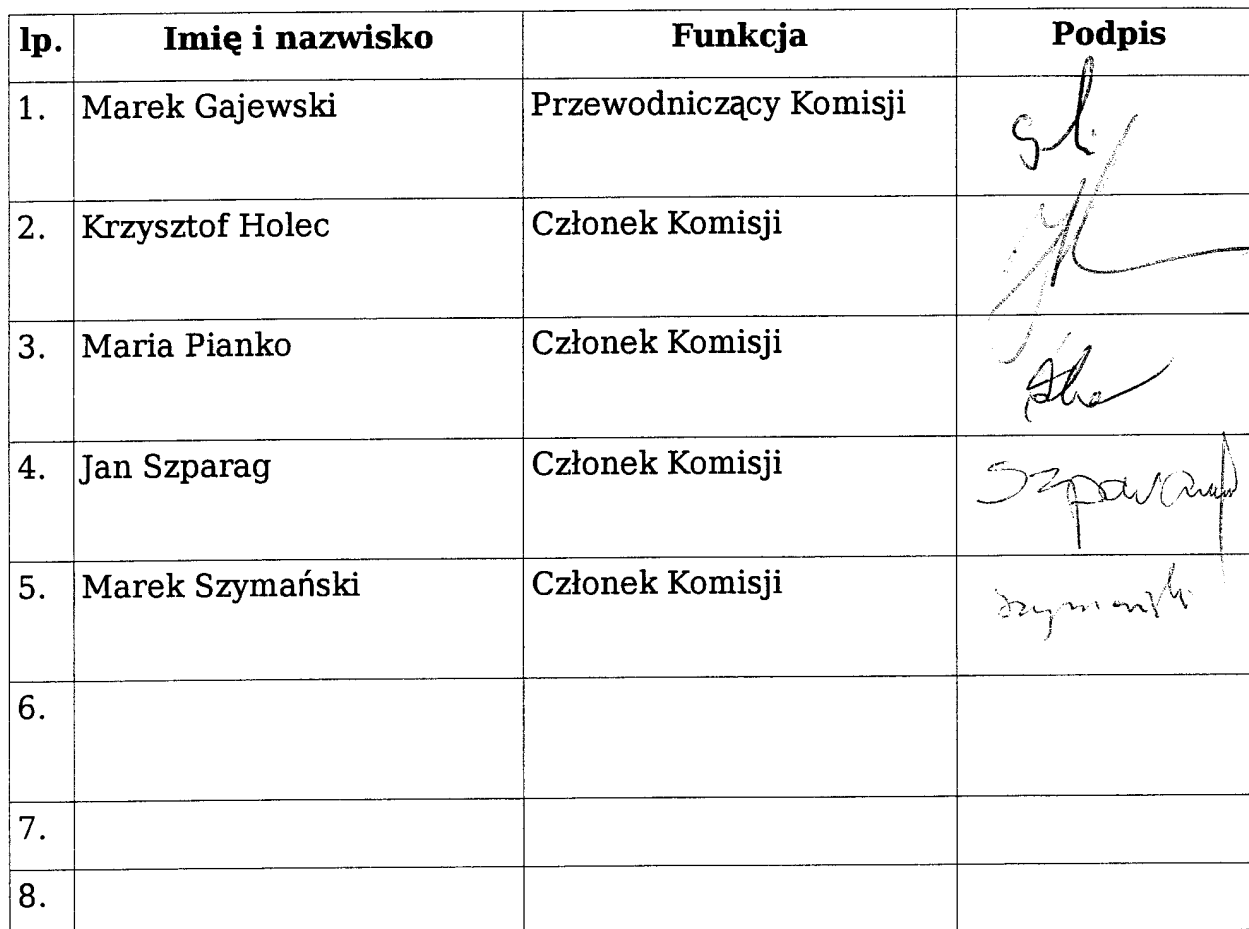 lp. Imię i nazwisko Funkcja Podpis
1. Marek Gajewski Przewodniczący Komisji
2. Krzysztof Holec Członek Komisji
3. Maria Pianko Członek Komisji
4. Jan Szparag Członek Komisji Szparag
5. Marek Szymański Członek Komisji Szymański
6.
7.
8.